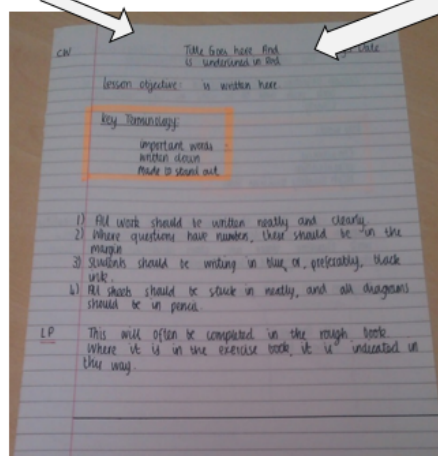 CW Title Goes here And Date
is underlined in Red
Lesson objective: is written here
Key Terminology:
important words
written down
Made to stand out
1) All work should be written neatly and clearly.
2) Where questions have numbers, these should be in the
margin
3) Students should be writing in blue or, preferably, black
ink.
4) All sheets should be stuck in neatly, and all diagrams
should be in pencil.
LP This will often be completed in the rough book.
Where it is in the exercise book, it is indicated in
this way.